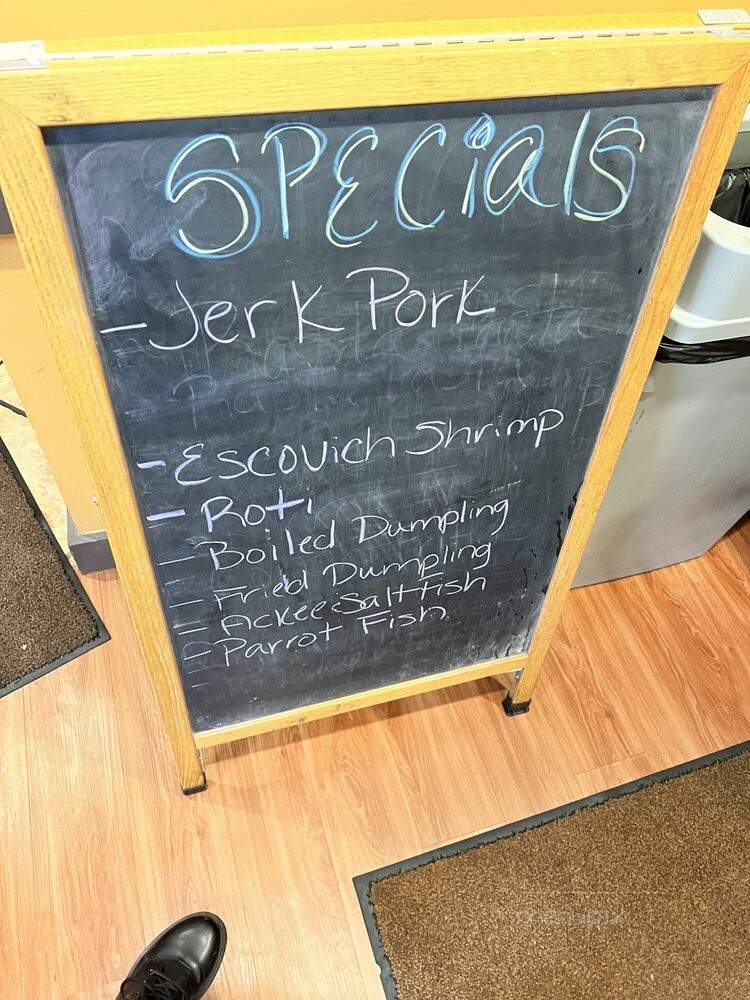 SPECiAlS
- Jerk Pork
- Escovich Shrimp
- Roti
- Boiled Dumpling
- Fried Dumpling
- Ackee Saltfish
- Parrot Fish
menupix